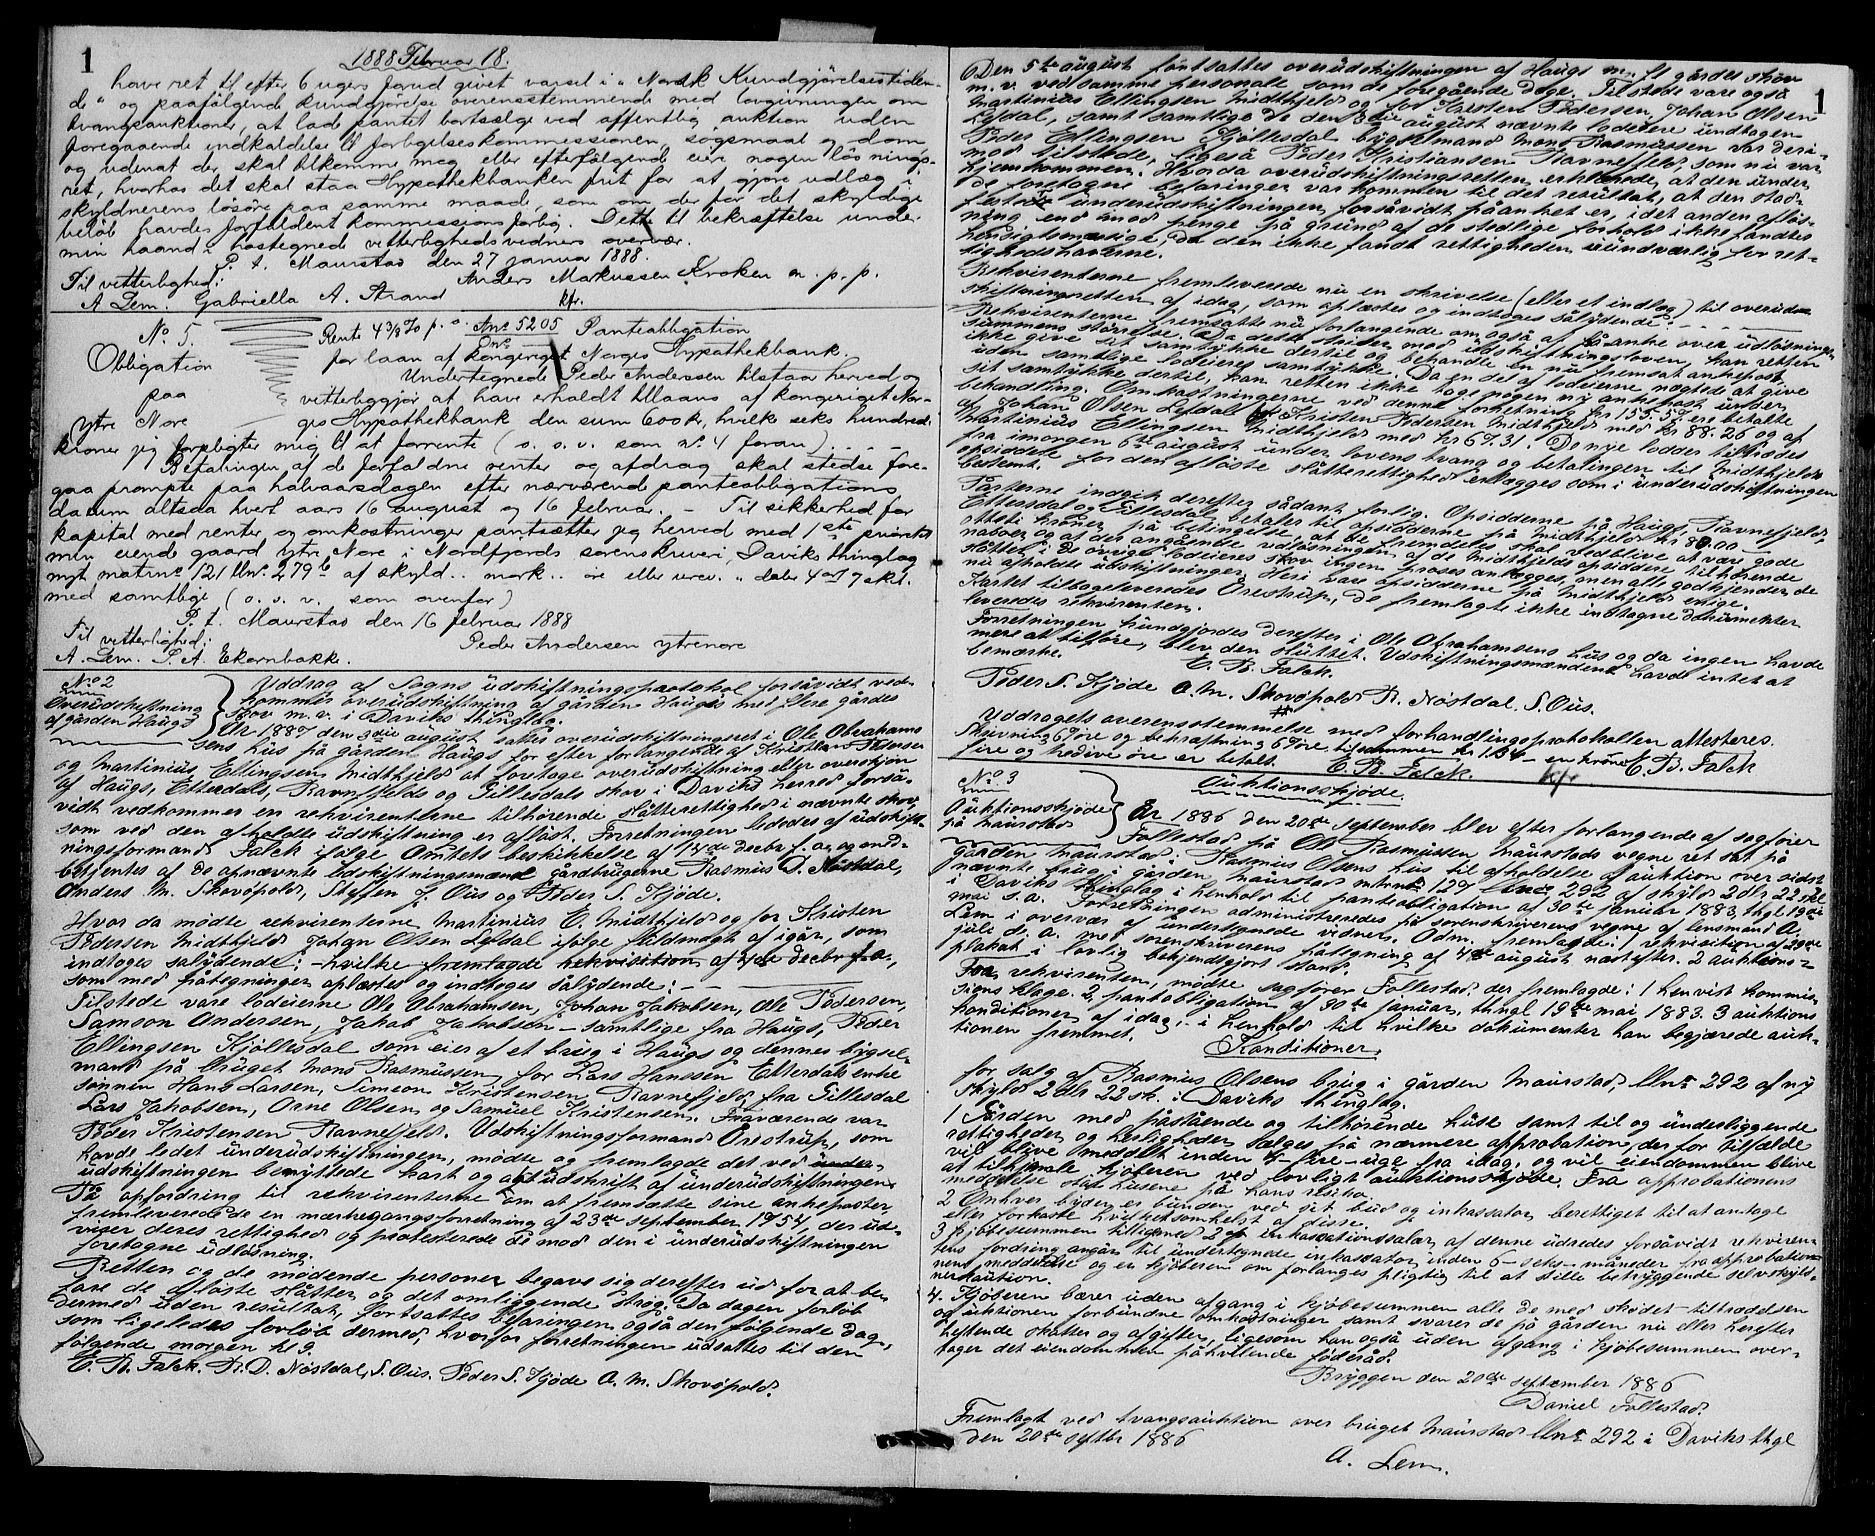 1
1888 Februar 18.
have ret til efter 6 ugers forud givet varsel i "Norsk Kundgjørelsestiden-
de" og paafølgende kundgjørelse overensstemmende med lovgivningen om
tvangsauktioner, at lade pantet bortsælge ved offentlig auktion uden
foregaaende indkaldelse til forligelseskommissionen, søgsmaal og dom,
og uden at der skal tilkomme mig eller efterfølgende eier nogen løsnings-
ret, hvorhos det skal staa Hypothekbanken frit for at gjøre udlæg i
skyldnerens løsøre paa samme maade, som om der for det skyldige
beløb havdes forfaldent kommissions forlig. Dette til bekræftelse under
min haand i hostegnede vitterlighedsvidners overvær.
P. t. Maurstad den 27 januar 1888.
Til vitterlighed: Anders Markussen Kroken m. p. p.
A Lem. Gabriella A. Strand kfr.
No 5. Rente 4 3/8 % p. a. Ano 5205 Panteobligation
Obligation for laan af kongeriget Norges Hypothekbank.
paa Undertegnede Peder Andersen tilstaar herved og
vitterliggjør at have erholdt tillaans af kongeriget Nor-
ytre Nore ges Hypothekbank den sum 600 k, hvilke seks hundred
kroner jeg forpligter mig til at forrente (o. s. v. som no 4 foran).
Betalingen af de forfaldne renter og afdrag skal stedse fore-
gaa prompte paa halvaarsdagen efter nærværende panteobligations
datum altsaa hvert aars 16 august og 16 februar. – Til sikkerhed for
kapital med renter og omkostninger pantsætter jeg herved med 1ste prioritet
min eiende gaard ytre Nore i Nordfjords sorenskriveri, Daviks thinglag
nyt matrno 121 lno 279b af skyld .. mark .. øre eller urev. " daler 4 ort 7 skl.
med samtlige (o. s. v. som ovenfor)
P. t. Maurstad den 16 februar 1888
Til vitterlighed: Peder Andersen ytrenore
A. Lem. P. A. Ekornbakke.
No 2
Overudskiftning
af gården Haugs
Uddrag af Sogns udskiftningsprotokol forsåvidt ved-
kommer overudskiftning af gården Haugs med flere gårdes
skov m. v. i Daviks thinglag.
År 1887 den 3die august sattes overudskiftningsret i Ole Abrahams
sens hus på gården Haugs for efter forlangende af Kristen Pedersen
og Martinius Ellingsen Midthjeld at foretage overudskiftning eller overskjøn
af Haugs, Etterdals, Ravnefjelds og Gillesdals skov i Daviks herred forså-
vidt vedkommer en rekvirenterne tilhørende slåtterettighed i nævnte skov,
som ved den afholdte udskiftning er afløst. Forretningen lededes af udskift-
ningsformand Falck ifølge Amtets beskikkelse af 14de decbr f. a. og
betjentes af de opnævnte udskiftningsmænd gårdbrugerne Rasmus D. Nøstdal,
Anders M. Skovøpold, Steffen J. Ous og Peder S. Kjøde.
Hvor da mødte rekvirenterne Martinius E. Midthjeld og for Kristen
Pedersen Midthjeld Johan Olsen Lefdal ifølge fuldmagt af igår, som
indtoges sålydende: – hvilke fremlagde rekvisition af 4de decbr f. a.,
som med påtegninger oplæstes og indtoges sålydende: –
Tilstede vare lodeierne Ole Abrahamsen, Johan Jakobsen, Ole Pedersen,
Samson Andersen, Jakob Jakobsen – samtlige fra Haugs, Peder
Ellingsen Kjøllesdal som eier af et brug i Haugs og dennes bygsel-
mand på bruget Mons Rasmussen, for Lars Hanssen Etterdals enke
sønnen Hans Larsen, Simeon Kristensen Ravnefjeld, fra Gillesdal
Lars Jakobsen, Arne Olsen og Samuel Kristensen. Fraværende var
Peder Kristensen Ravnefjeld. Udskiftningsformand Orestrup, som
havde ledet underudskiftningen, mødte og fremlagde det ved under-
udskiftningen benyttede kart og udskrift af underudskiftningen.
På opfordring til rekvirenterne om at fremsætte sine ankeposter,
fremleverede de en mærkegangsforretning af 23de september 1754, der ud-
viser deres rettighed og protesterede de mod den i underudskiftningen
foretagne udløsning.
Retten og de mødende personer begavs sig derefter ud for at be-
fare de afløste slåtter og det omliggende strøg. Da dagen forløb
dermed uden resultat, fortsattes befaringen også den følgende dag,
som ligeledes forløb dermed, hvorfor forretningen udsattes til den
følgende morgen kl 9.
E. B. Falck. R. D. Nøstdal, S. Ous. Peder S. Kjøde A. M. Skovøpold.
1
Den 5te august fortsattes overudskiftningen af Haugs m. fl gårdes skov
m. v. ved samme personale som de foregående dage. Tilstede vare også
Martinius Ellingsen Midthjeld og for Kristen Pedersen, Johan Olsen
Lefdal, samt samtlige de den 3die august nævnte lodeiere undtagen
Peder Ellingsen Kjøllesdal bygselmand Mons Rasmussen var deri-
mod tilstede, ligeså Peder Kristiansen Ravnefjeld, som nu var
hjemkommen. Hvorda overudskiftningsretten erklærede, at den under
de foretagne befaringer var kommen til det resultat, at den stad-
fæstede underudskiftningen forsåvidt påanket er, idet anden afløs-
ning end mod penge på grund af de stedlige forhold ikke fandtes
hensigtsmæssige, da den ikke fandt rettigheden uundværlig for ret-
tighedshaverne.
Rekvirenterne fremleverede nu en skrivelse (eller et indlæg) til overud-
skiftningsretten af idag, som oplæstes og indtoges sålydende: –
Rekvirenterne fremsatte nu forlangende om også at få anke over udløsnings-
summens størrelse. Da dette strider mod udskiftningsloven, kan retten
ikke give sit samtykke dertil og behandle en nu fremsat ankepost,
uden samtlige lodeieres samtykke. Da en del af lodeierne nægtede at give
sit samtykke dertil, kan retten ikke tage nogen ny ankepost under
behandling. Omkostningerne ved denne forretning kr 155.57 ere betalte
af Johan Olsen Lefdal for Kristen Pedersen Midthjeld med kr 88.26 og af
Martinius Ellingsen Midthjeld med kr 67.31. De nye lodder tiltrædes
fra imorgen 6te august under lovens tvang og betalingen til Midthjelds
opsiddere for den afløste slåtterettighed erlægges som i underudskiftningen
bestemt.
Parterne indgik derefter sådant forlig. Opsidderne på Haugs, Ravnefjeld,
Etterdal og Gillesdal betaler til opsidderne på Midthjeld kr 80.00 –
otteti kroner på betingelse at de fremdeles skal vedblive at være gode
naboer og at der angående udløsningen af de Midthjelds opsiddere tilhørende
slåtter i de øvrige lodeieres skov ingen proces anlægges, men alle godkjender de
nu afholdte udskiftninger. Heri vare opsidderne på Midthjeld enige.
Kartet tilbageleveredes Orestrup, de fremlagte ikke indtagne dokumenter
leveredes rekvirenten.
Forretningen kundgjordes derefter i Ole Abrahamsens hus og da ingen havde
mere at tilføre, blev den sluttet. Udskiftningsmændene havde intet at
bemærke.
E. B. Falck.
Peder S. Kjøde A. M. Skovøpold R. Nøstdal. S. Ous.
Uddragets overensstemmelse med forhandlingsprotokollen attesteres.
Skrivning 67 øre og bekræftning 67 øre tilsammen kr 1.34 – en krone
fire og tredive øre er betalt. E. B. Falck. kfr. E. B. Falck
No 3
Auktionsskjøde
på Maurstad
Auktionsskjøde.
År 1886 den 20de september blev efter forlangende af sagfører
Follestad på Ole Rasmussen Maurstads vegne ret sat på
gården Maurstad i Rasmus Olsens hus til afholdelse af auktion over sidst
nævnte brug i gården Maurstad mtrno 127 lno 292 af skyld 2 dlr 22 skl
i Daviks thinglag i henhold til panteobligation af 30te januar 1883, thgl 19de
mai s. a. Forretningen administreredes på sorenskriverens vegne af lensmand A.
Lem i overvær af undertegnede vidner. Adm. fremlagde: 1 rekvisition af 29de
juli d. a. med sorenskriverens påtegning af 4de august næstefter. 2 auktions-
plakat i lovlig bekjendtgjort stand.
For rekvirenten mødte sagfører Follestad der fremlagde: 1 henvist kommis-
sions klage. 2, pantobligation af 30te januar, thngl 19de mai 1883. 3 auktions
konditioner af idag, – i henhold til hvilke dokumenter han begjærede auk-
tionen fremmet.
Konditioner,
for salg af Rasmus Olsens brug i gården Maurstad lno 292 af ny
skyld 2 dlr 22 sk. i Daviks thinglag.
1 Gården med påstående og tilhørende huse samt til og underliggende
rettigheder og herligheder sælges på nærmere approbation, der for tilfælde
vil blive meddelt inden 4 fire – uge fra idag, og vil eiendommen blive
at tilhjemle kjøberen ved lovligt auktionsskjøde. Fra approbationens
meddelelse står husene på hans risiko.
2 Enhver byder er bunden ved sit bud og inkassator berettiget til at antage
eller forkaste hvilketsomhelst af disse.
3 Kjøbesummen tilligemed 2 % inkassationssalær, af denne udredes forsåvidt rekviren-
tens fordring angår til undertegnede inkassator inden 6 – seks – måneder fra approbatio-
nens meddelelse og er kjøberen om forlanges pligtig til at stille betryggende selvskyld-
nerkaution.
4. Kjøberen bærer uden afgang i kjøbesummen alle de med skødet tiltrædelsen
og auktionen forbundne omkostninger samt svarer de på gården nu eller herefter
heftende skatter og afgifter, ligesom han også uden afgang i kjøbesummen over-
tager det eiendommen påhvilende føderåd.
Bryggen den 20de september 1886
Daniel Follestad.
Fremlagt ved tvangsauktion over bruget Maurstad lno 292 i Daviks thgl
den 20de septbr 1886
A. Lem.